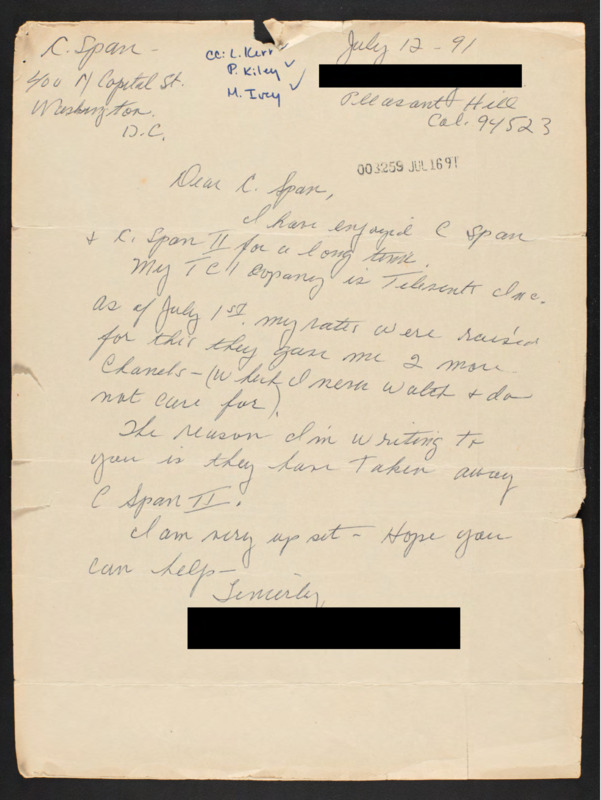 C. Span -
400 N Capital St.
Washington.
D.C.
cc: L. Kerr ✓
P. Kiley ✓
M. Ivey ✓
July 12 - 91
Pleasant Hill
Cal. 94523
003259 JUL 16 91
Dear C. Span,
I have enjoyed C Span
+ C. Span II for a long time.
My T C I Copany is Televents Inc.
As of July 1st. my rates were raised
for this they gave me 2 more
Chanels - (which I never watch + do
not care for).
The reason I'm writing to
you is they have taken away
C Span II.
I am very upset - Hope you
can help -
Sincerley,